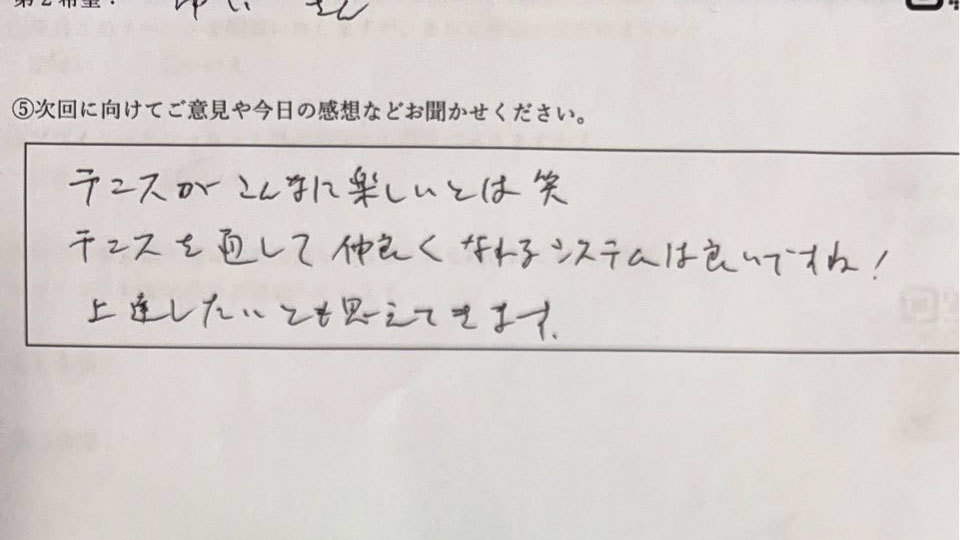 第2希望：
⑤次回に向けてご意見や今日の感想などお聞かせください。
テニスがこんなに楽しいとは笑
テニスを通して仲良くなれるシステムは良いですね！
上達したいとも思えてきます。